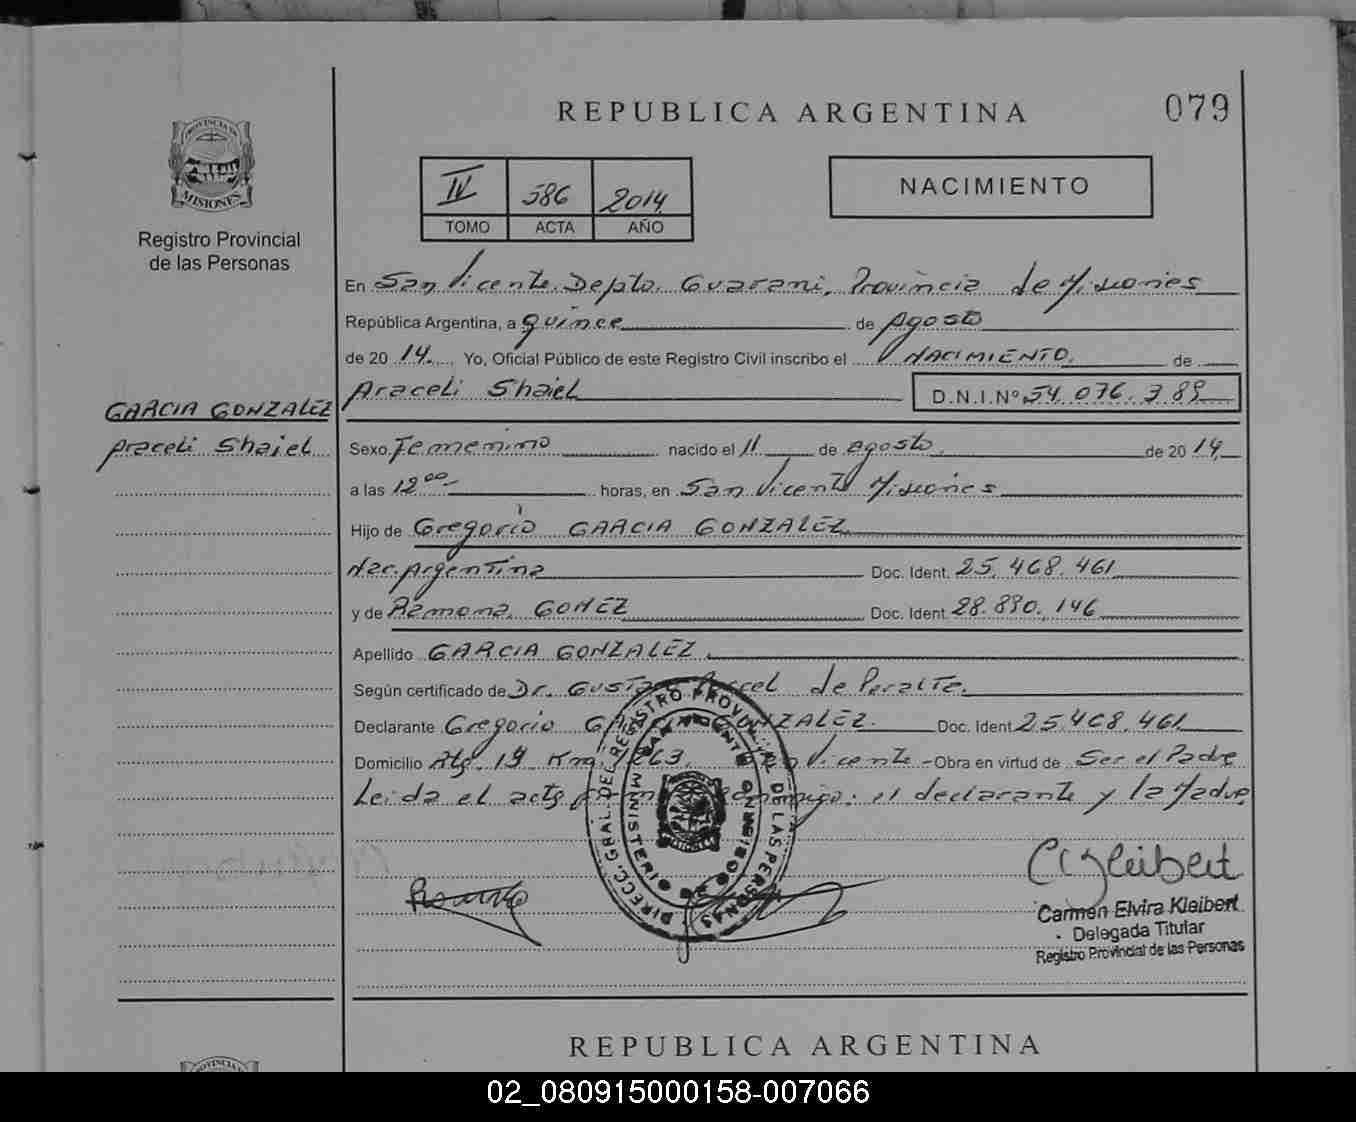 REPUBLICA ARGENTINA
079
PROVINCIA DE
MISIONES
Registro Provincial
de las Personas
IV 586 2014
TOMO ACTA AÑO
NACIMIENTO
En San Vicente, Depto. Guarani, Provincia de Misiones
República Argentina, a quince de Agosto
de 20 14. Yo, Oficial Público de este Registro Civil inscribo el NACIMIENTO. de
Araceli Shaiel D.N.I.Nº 54.076.389
GARCIA GONZALEZ
Araceli Shaiel
Sexo. Femenino nacido el 11 de agosto de 20 14
a las 12 00 horas, en San Vicente Misiones
Hijo de Gregorio GARCIA GONZALEZ
Nac. Argentina Doc. Ident. 25.468.461
y de Ramona GOMEZ Doc. Ident. 28.890.146
Apellido GARCIA GONZALEZ.
Según certificado de Dr. de Peralta.
Declarante Gregorio GONZALEZ. Doc. Ident. 25.468.461
Domicilio Km. Vicente - Obra en virtud de Ser el Padre
Leida el acta conmigo: el declarante y la Madre
DIRECC. GRAL. DEL REGISTRO PROVINCIAL DE LAS PERSONAS
MINISTERIO DE GOBIERNO
SAN VICENTE
Carmen Elvira Kleibert
Delegada Titular
Registro Provincial de las Personas
REPUBLICA ARGENTINA
02_080915000158-007066